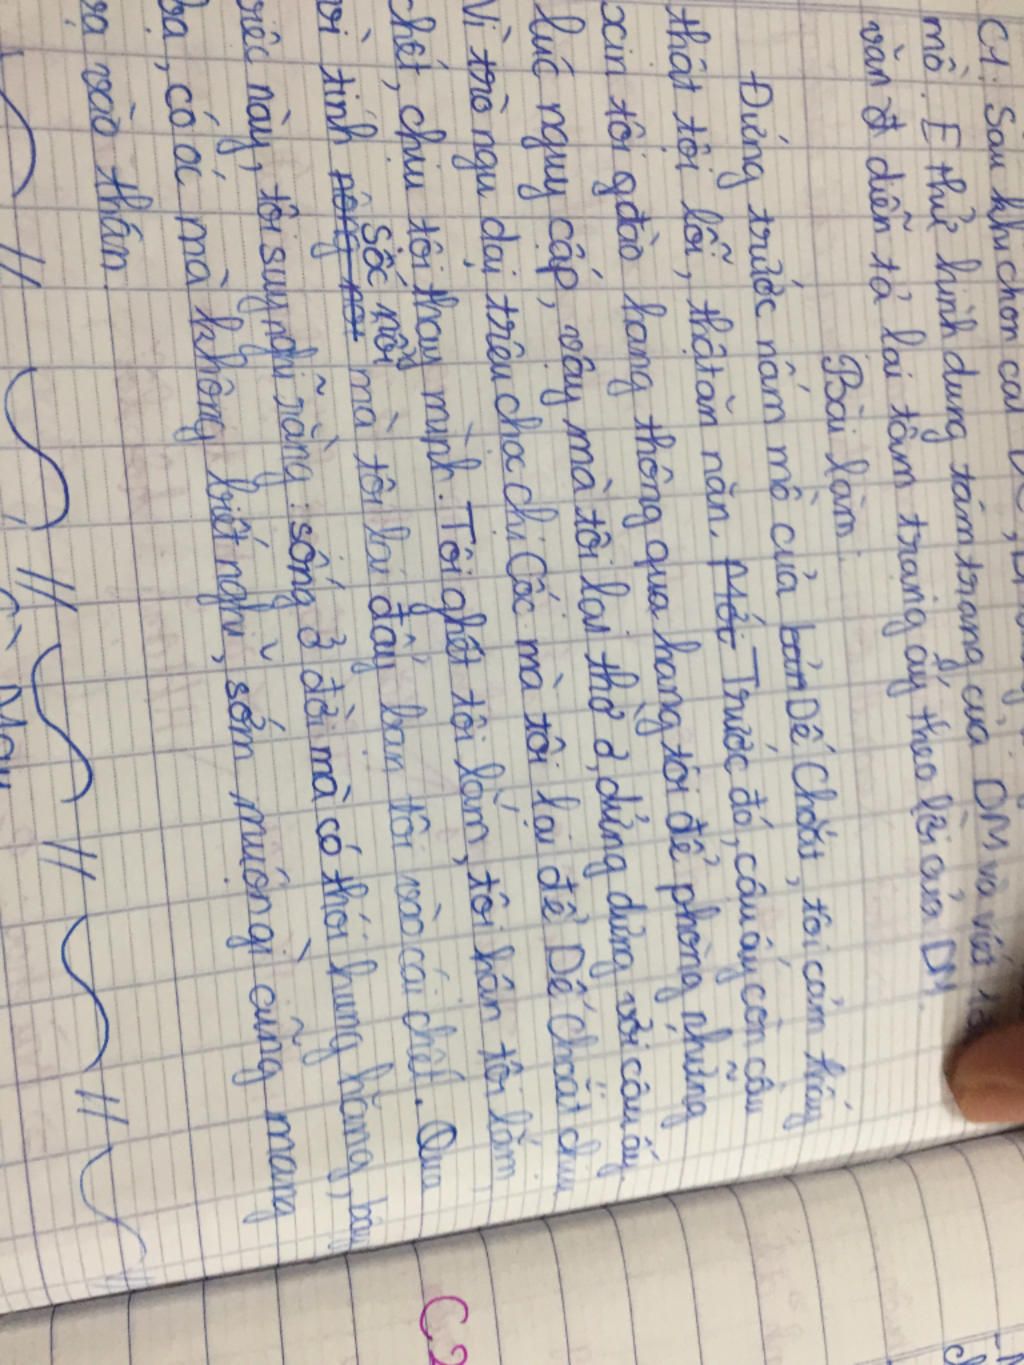 C1: Sau khi chôn cất DC,
mồ. E thử hình dung tâm trạng của DM và viết
văn đ diễn tả lại tâm trạng ấy theo lời của DM.
Bài làm:
Đứng trước nấm mồ của bản Dế Choắt, tôi cảm thấy
thật tội lỗi, thật ăn năn. Một Trước đó, cậu ấy còn cầu
xin tôi đào hang thông qua hang tôi để phòng những
lúc nguy cấp, vậy mà tôi lại thờ ơ, dửng dưng với cậu ấy
Vì trò ngu dại trêu chọc chị Cốc mà tôi lại để Dế Choắt chịu
chết, chịu tôi thay mình. Tôi ghét tôi lắm, tôi hận tôi lắm,
sốc nổi
tính nông nổi mà tôi lại đẩy bạn tôi vào cái chết. Qua
việc này, tôi suy nghĩ rằng: sống ở đời mà có thói hung hăng, bậy
bạ, có óc mà không biết nghĩ, sớm muộn gì cũng mang
vạ vào thân.
C2